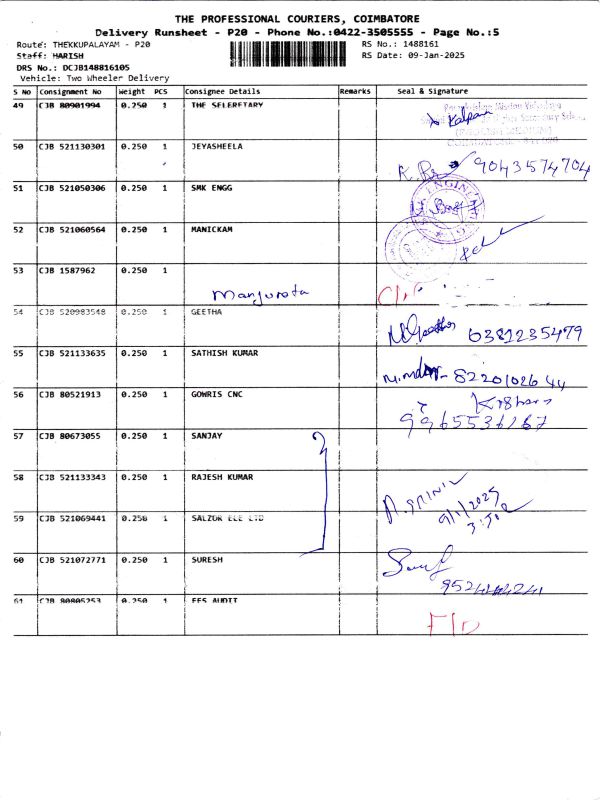 THE PROFESSIONAL COURIERS, COIMBATORE
Delivery Runsheet - P20 - Phone No.:0422-3505555 - Page No.:5
Route: THEKKUPALAYAM - P20 RS No.: 1488161
Staff: HARISH RS Date: 09-Jan-2025
DRS No.: DCJB148816105
Vehicle: Two Wheeler Delivery
S No Consignment No Weight PCS Consignee Details Remarks Seal & Signature
49 CJB 80901994 0.250 1 THE SELERETARY
50 CJB 521130301 1 JEYASHEELA
9043574704
51 CJB 521050306 0.250 1 SMK ENGG
52 CJB 521060564 0.250 1 MANICKAM
53 CJB 1587962 0.250 1
54 CJB 520983548 0.250 1 GEETHA
6381235479
55 CJB 521133635 0.250 1 SATHISH KUMAR
56 CJB 80521913 0.250 1 GOWRIS CNC
57 CJB 80673055 0.250 1 SANJAY
58 CJB 521133343 0.250 1 RAJESH KUMAR
9/1/2025
59 CJB 521069441 0.250 1 SALZUR ELE LTD
60 CJB 521072771 0.250 1 SURESH
61 CJB 80805253 0.250 1 EFS AUDIT